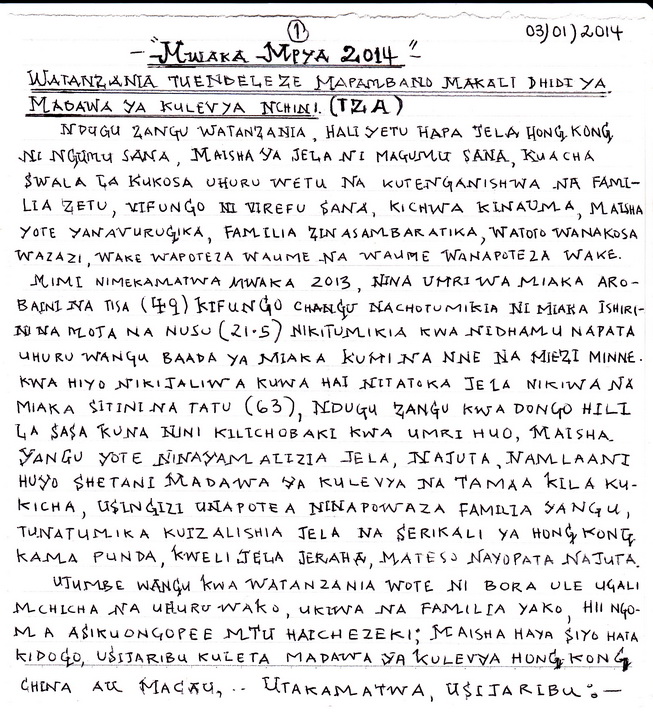 ①
03/01/2014
- "MWAKA MPYA 2014" -
WATANZANIA TUENDELEZE MAPAMBANO MAKALI DHIDI YA
MADAWA YA KULEVYA NCHINI. (TZA)
NDUGU ZANGU WATANZANIA, HALI YETU HAPA JELA HONG KONG
NI NGUMU SANA, MAISHA YA JELA NI MAGUMU SANA, KUACHA
SWALA LA KUKOSA UHURU WETU NA KUTENGANISHWA NA FAMI-
LIA ZETU, VIFUNGO NI VIREFU SANA, KICHWA KINAUMA, MAISHA
YOTE YANAVURUGIKA, FAMILIA ZINASAMBARATIKA, WATOTO WANAKOSA
WAZAZI, WAKE WAPOTEZA WAUME NA WAUME WANAPOTEZA WAKE.
MIMI NIMEKAMATWA MWAKA 2013, NINA UMRI WA MIAKA ARO-
BAINI NA TISA (49) KIFUNGO CHANGU NACHOTUMIKIA NI MIAKA ISHIRI-
NI NA MOJA NA NUSU (21.5) NIKITUMIKIA KWA NIDHAMU NAPATA
UHURU WANGU BAADA YA MIAKA KUMI NA NNE NA MIEZI MINNE.
KWA HIYO NIKIJALIWA KUWA HAI NITATOKA JELA NIKIWA NA
MIAKA SITINI NA TATU (63), NDUGU ZANGU KWA DONGO HILI
LA SASA KUNA NINI KILICHOBAKI KWA UMRI HUO, MAISHA
YANGU YOTE NINAYAMALIZIA JELA, NAJUTA, NAMLAANI
HUYO SHETANI MADAWA YA KULEVYA NA TAMAA KILA KU-
KICHA, USINGIZI UNAPOTEA NINAPOWAZA FAMILIA YANGU,
TUNATUMIKA KUIZALISHIA JELA NA SERIKALI YA HONG KONG
KAMA PUNDA, KWELI JELA JERAHA, MATESO NAYOPATA NAJUTA.
UJUMBE WANGU KWA WATANZANIA WOTE NI BORA ULE UGALI
MCHICHA NA UHURU WAKO, UKIWA NA FAMILIA YAKO, HII NGO-
MA ASIKUONGOPEE MTU HAICHEZEKI; MAISHA HAYA SIYO HATA
KIDOGO, USIJARIBU KULETA MADAWA YA KULEVYA HONG KONG
CHINA AU MACAU, .. UTAKAMATWA, USIJARIBU :-